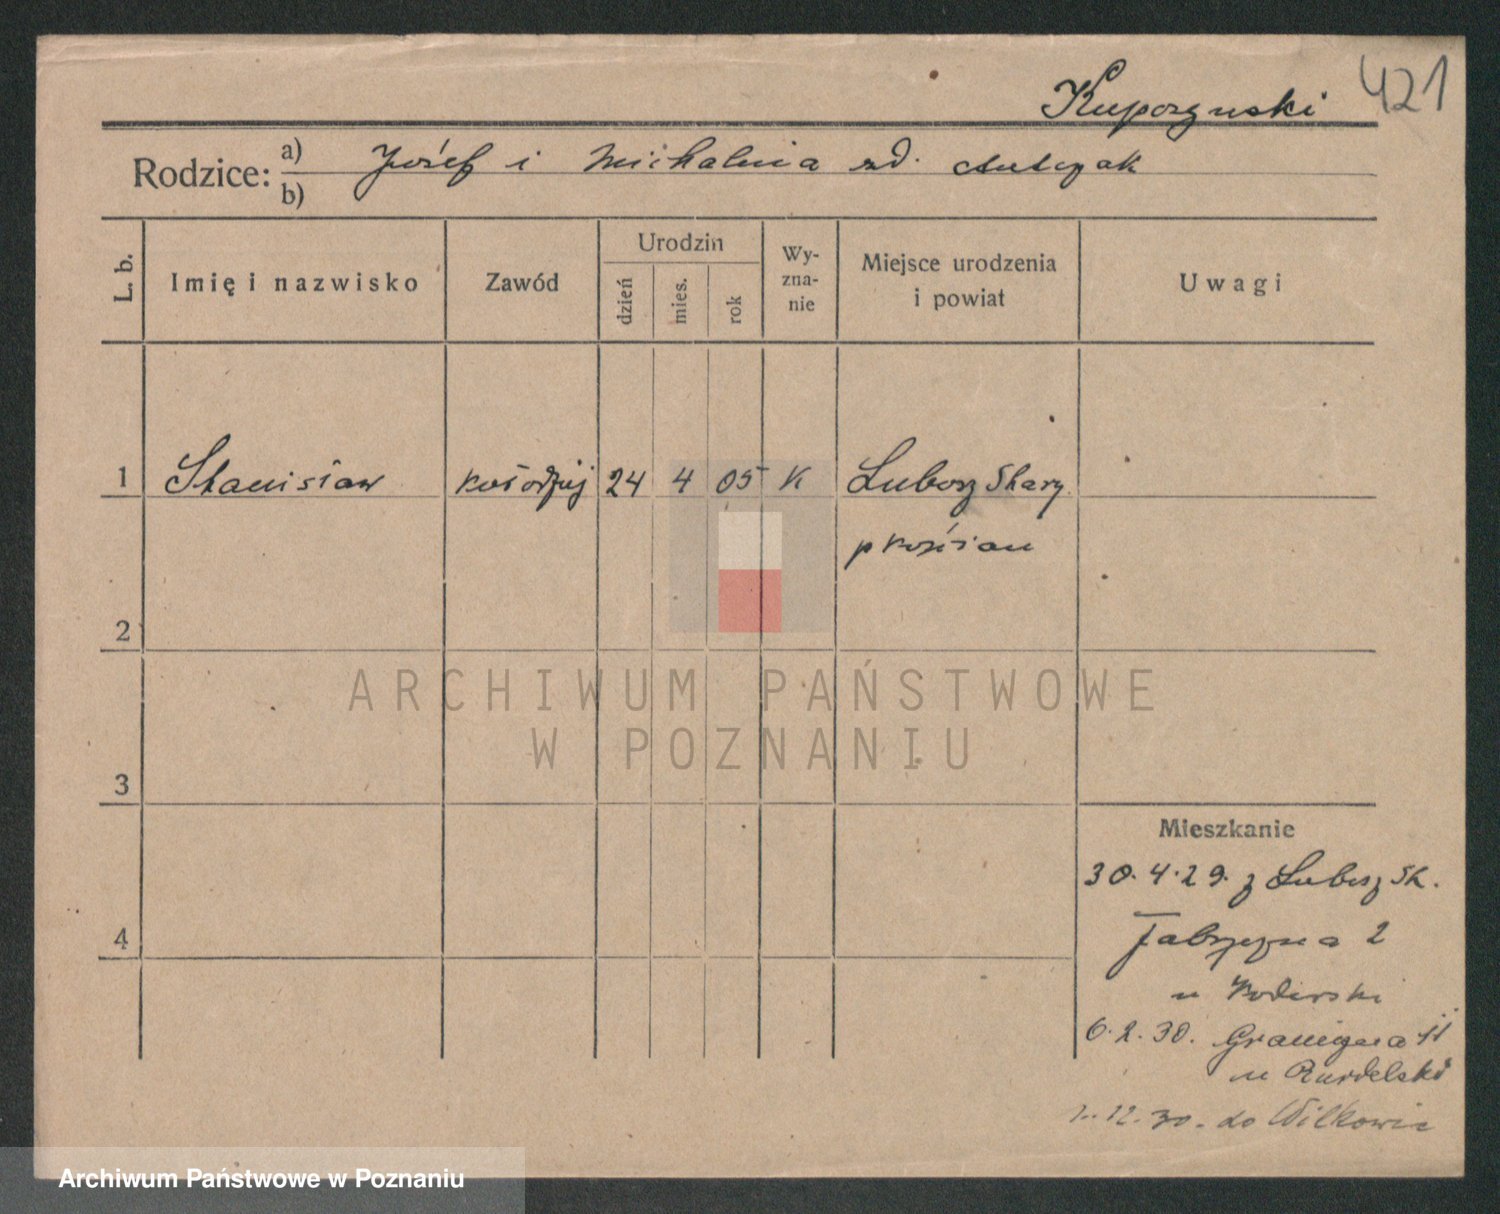 421
Kuporzynski
Rodzice: a) Józef i Michalina zd. Antczak
b)
L. b.
Imię i nazwisko
Zawód
Urodzin
dzień
mies.
rok
Wy-
zna-
nie
Miejsce urodzenia
i powiat
Uwagi
1 Stanisław kołodziej 24 4 05 K Lubosz Stary
p Kościan
2
3
4
Mieszkanie
30.4.29. z Lubosz St.
Fabryczna 2
u
6.2.30. Graniczna 11
u
1.12.30. do Wilkowic
ARCHIWUM PAŃSTWOWE
W POZNANIU
Archiwum Państwowe w Poznaniu